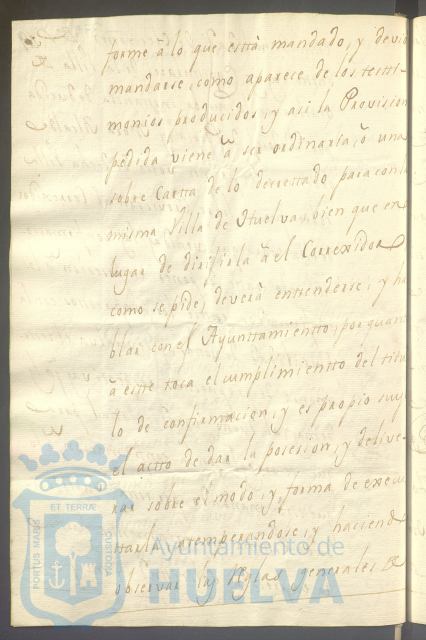 forme à lo que està mandado, y devio
mandarse, como aparece de los testi-
monios producidos, y asi la Provision
pedida viene à ser ordinaria, ò una
sobre Cartta de lo decrettado para con la
misma Villa de Huelva, bien que en
lugar de dirijirla à el Correxidor
como se pide, deverà entenderse, y ha
blar con el Ayunttamientto, por quan
à estte toca el cumplimientto del titu
lo de confirmacion, y es propio suyo
el actto de dar la posesion, y delive-
rar sobre el modo, y forma de execu
ttarla, attemperandose, y haciend
observar las Reglas generales
PORTUS MARIS ET TERRAE CUSTODIA
Ayuntamiento de
HUELVA